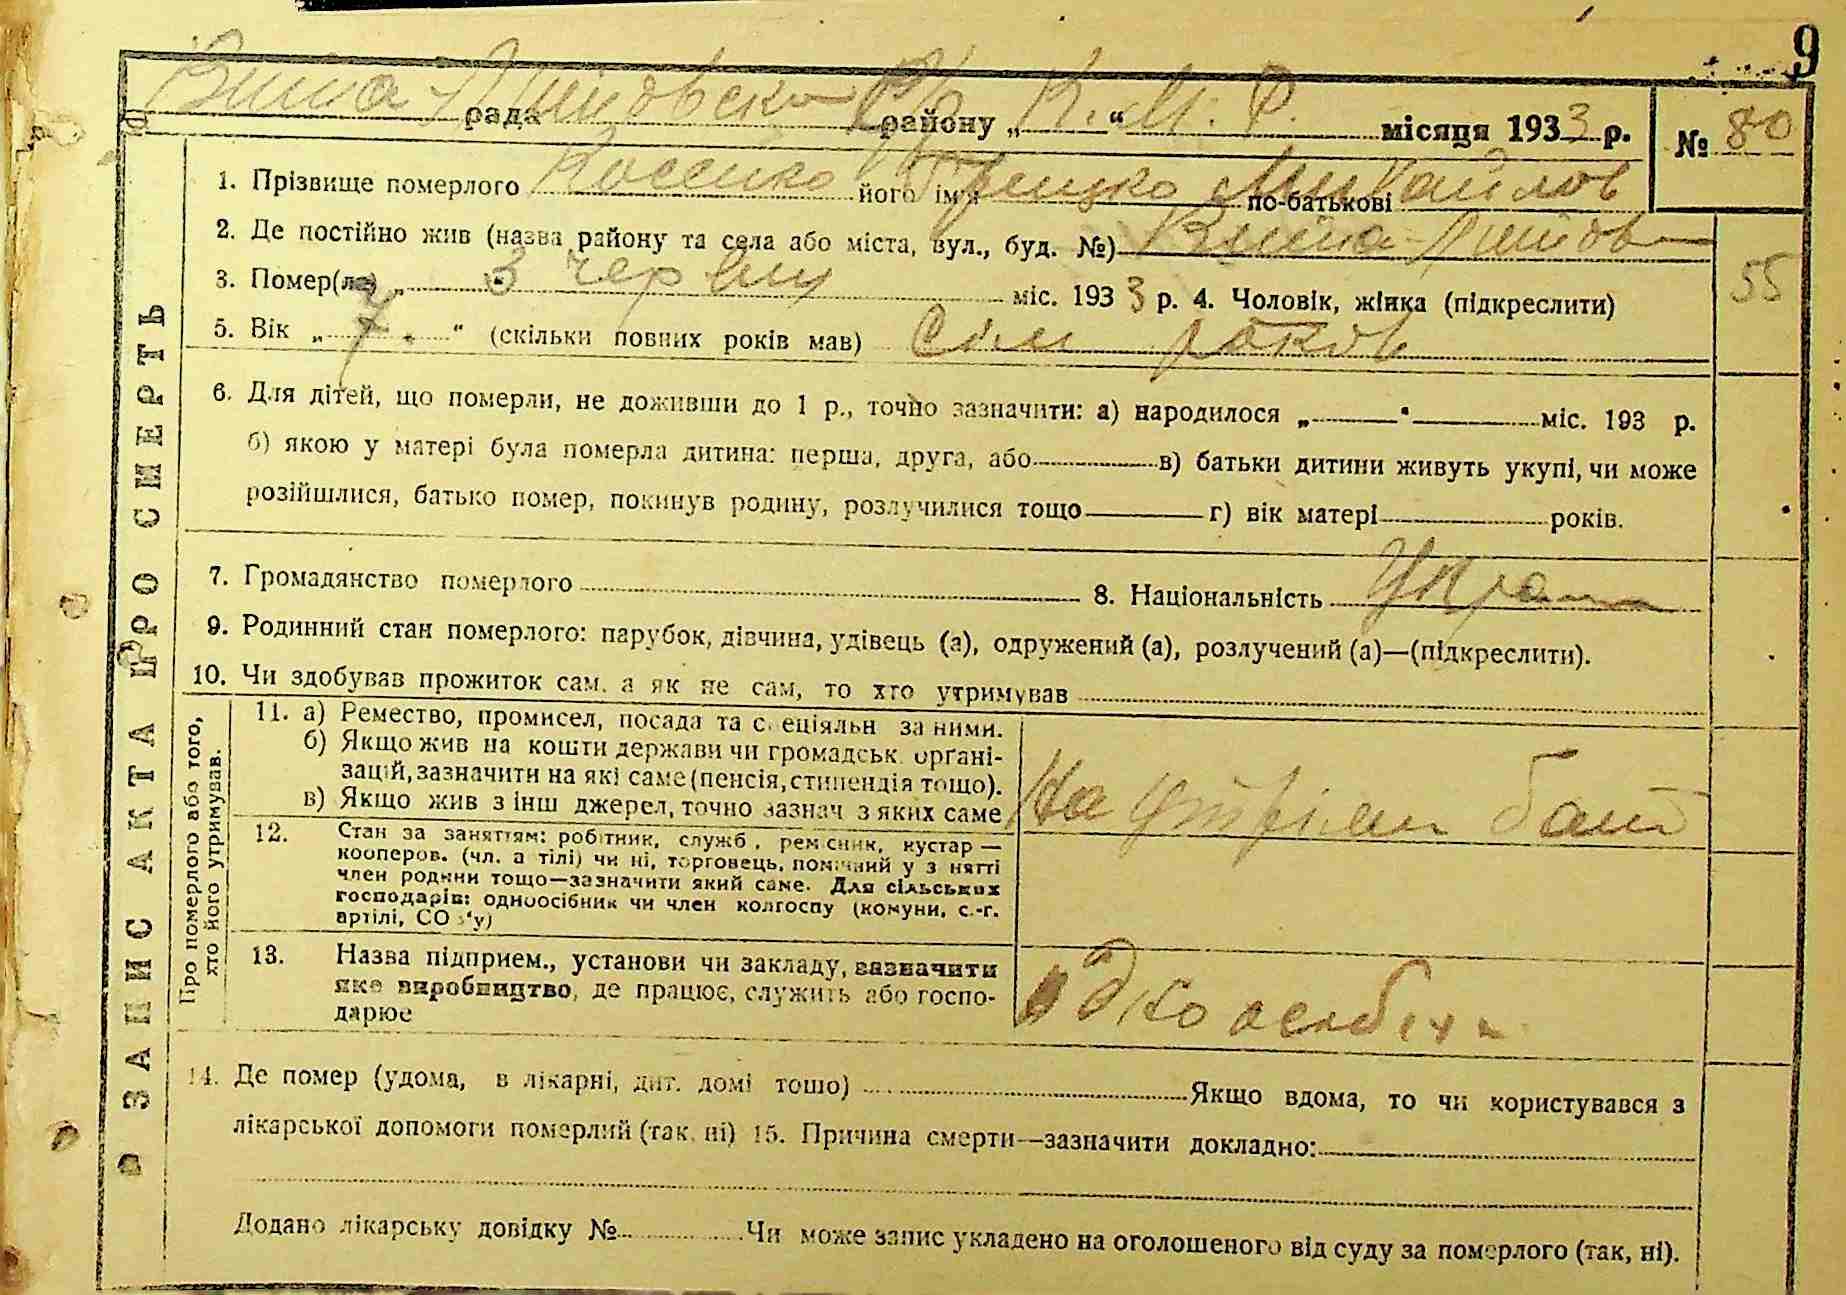 9
Вища-
рада району „ К. М. Р. “ місяця 1933 р. № 80
1. Прізвище померлого його ім'я Грицко по-батькові Михайлов
2. Де постійно жив (назва району та села або міста, вул., буд. №) Вища-
3. Помер(ла) „ 3 червня міс. 1933 р. 4. Чоловік, жінка (підкреслити)
55
5. Вік „ 7 “ (скільки повних років мав) Сім років
6. Для дітей, що померли, не доживши до 1 р., точно зазначити: а) народилося „ “ міс. 193 р.
б) якою у матері була померла дитина: перша, друга, або в) батьки дитини живуть укупі, чи може
розійшлися, батько помер, покинув родину, розлучилися тощо г) вік матері років.
7. Громадянство померлого 8. Національність Укра
9. Родинний стан померлого: парубок, дівчина, удівець (а), одружений (а), розлучений (а)—(підкреслити).
10. Чи здобував прожиток сам, а як не сам, то хто утримував
ЗАПИС АКТА ПРО СМЕРТЬ
Про померлого або того,
хто його утримував.
11. а) Ремество, промисел, посада та спеціяльн за ними.
б) Якщо жив на кошти держави чи громадськ. орґані-
зацій, зазначити на які саме (пенсія, стипендія тощо).
в) Якщо жив з інш джерел, точно зазнач з яких саме
На утріман бат
12. Стан за заняттям: робітник, служб., ремісник, кустар—
кооперов. (чл. а тілі) чи ні, торговець, помічний у занятті
член родини тощо—зазначити який саме. Для сільських
господарів: одноосібник чи член колгоспу (комуни, с.-г.
артілі, СОЗ'у)
13. Назва підприєм., установи чи закладу, зазначити
яке виробництво, де працює, служить або госпо-
дарює
14. Де помер (удома, в лікарні, дит. домі тощо) Якщо вдома, то чи користувався з
лікарської допомоги померлий (так, ні) 15. Причина смерти—зазначити докладно:
Додано лікарську довідку № Чи може запис укладено на оголошеного від суду за померлого (так, ні).